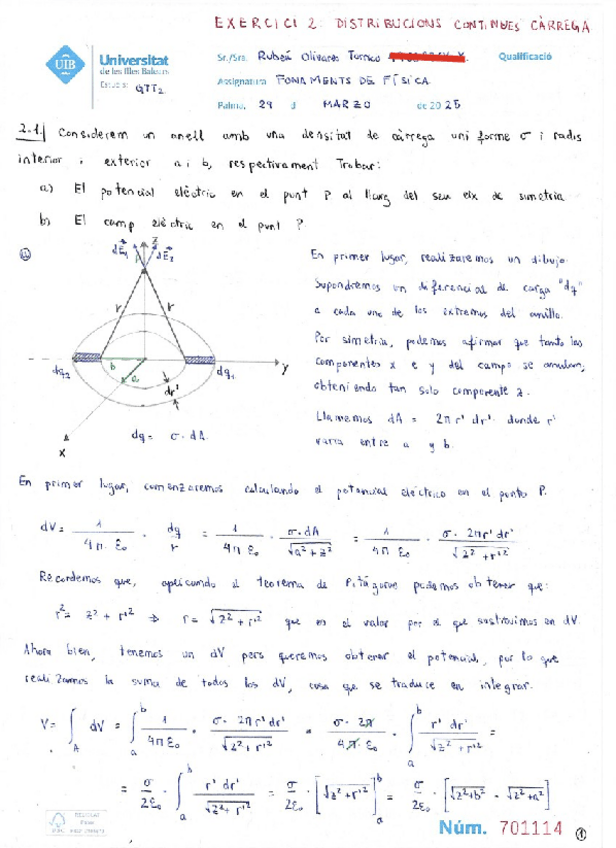 EXERCICI 2: DISTRIBUCIONS CONTINUES CÀRREGA
UIB
Universitat
de les Illes Balears
Sr./Sra. Rubén Olivares Qualificació
Estudis: GTT2
Assignatura FONAMENTS DE FÍSICA
Palma, 29 d MARZO de 2025
2.1. Considerem un anell amb una densitat de càrrega uniforme σ i radis
interior i exterior a i b, respectivament Trobar:
a) El potencial elèctric en el punt P al llarg del seu eix de simetria
b) El camp elèctric en el punt P.
dE₁ z dE₂
r r
b a
dq₂ dq₁ y
dr'
x
dq = σ · dA
En primer lugar, realizaremos un dibujo.
Supondremos un diferencial de carga "dq"
a cada uno de los extremos del anillo.
Por simetria, podemos afirmar que tanto las
componentes x e y del campo se anulan,
obteniendo tan solo componente z.
Llamemos dA = 2π r' dr' donde r'
varia entre a y b.
En primer lugar, comenzaremos calculando el potencial eléctrico en el punto P.
dV = 1/(4π · ε₀) · dq/r = 1/(4π ε₀) · σ · dA/√(a² + z²) = 1/(4π ε₀) · σ · 2π r' dr'/√(z² + r'²)
Recordemos que, aplicando el teorema de Pitágoras podemos obtener que:
r² = z² + r'² ⇒ r = √(z² + r'²) que es el valor por el que sustituimos en dV
Ahora bien, tenemos un dV pero queremos obtener el potencial, por lo que
realizamos la suma de todos los dV, cosa que se traduce en integrar.
V = ∫_A dV = ∫_a^b 1/(4π ε₀) · σ · 2π r' dr'/√(z² + r'²) = σ · 2π/(4π ε₀) · ∫_a^b r' dr'/√(z² + r'²) =
= σ/(2ε₀) · ∫_a^b r' dr'/√(z² + r'²) = σ/(2ε₀) · [√(z² + r'²)]_a^b = σ/(2ε₀) · [√(z² + b²) - √(z² + a²)]
Núm. 701114 1